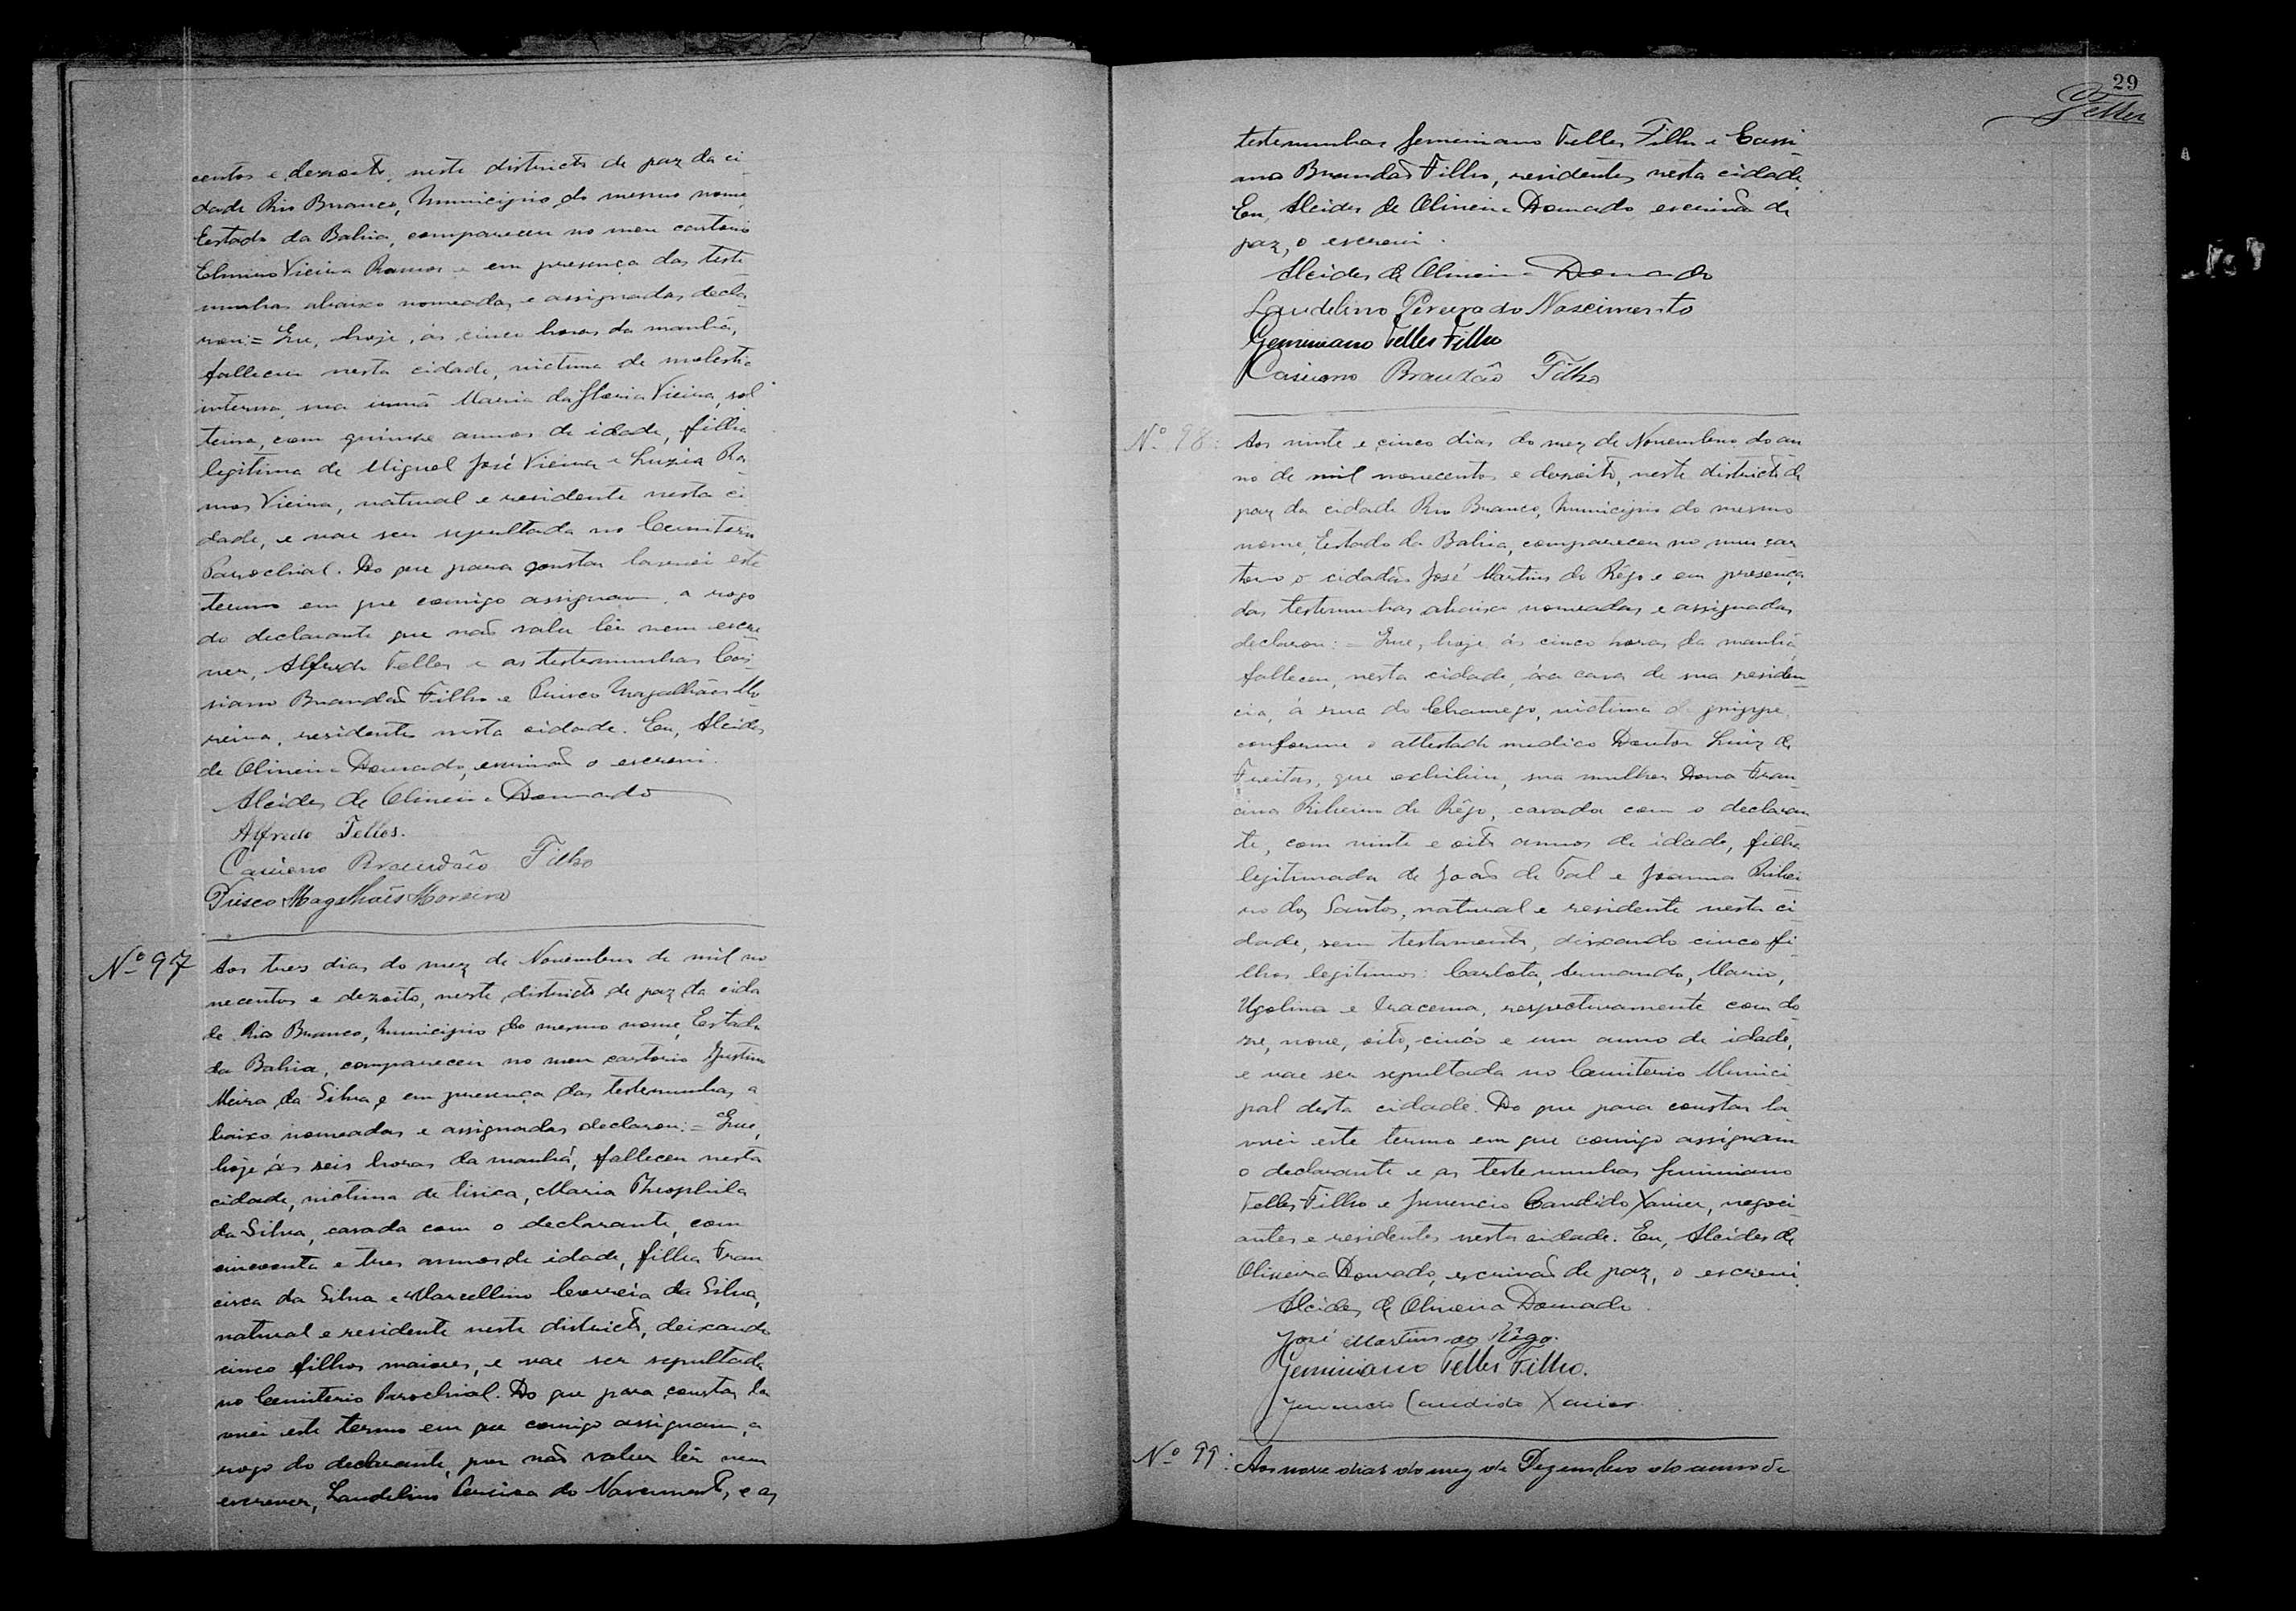 centos e dezoito, neste districto de paz da ci-
dade Rio Branco, Municipio do mesmo nome,
Estado da Bahia, compareceu no meu cartorio
Vieira Ramos e em presença das teste-
munhas abaixo nomeadas e assignadas decla-
rou:= Que, hoje, ás cinco horas da manhã,
falleceu nesta cidade, victima de molestia
interna, sua irmã Maria da Gloria Vieira, sol-
teira, com quinse annos de idade, filha
legitima de Miguel José Vieira e Luzia Ra-
mos Vieira, natural e residente nesta ci-
dade, e vae ser sepultada no Cemiterio
Parochial. Do que para constar lavrei este
termo em que comigo assignam, a rogo
do declarante que não sabe lêr nem escre-
ver, Alfredo Telles e as testemunhas Cas-
siano Brandão Filho e Prisco Magalhães Mo-
reira, residentes nesta cidade. Eu, Alcides
de Oliveira Dourado, escrivão o escrevi.
Alcides de Oliveira Dourado
Alfredo Telles.
Cassiano Brandão Filho
Prisco Magalhães Moreira
Nº 97 Aos tres dias do mez de Novembro de mil no-
vecentos e dezoito, neste districto de paz da cida-
de Rio Branco, Municipio do mesmo nome, Estado
da Bahia, compareceu no meu cartorio Justino
Meira da Silva e em presença das testemunhas a-
baixo nomeadas e assignadas declarou:= Que,
hoje ás seis horas da manhã, falleceu nesta
cidade, victima de tisica, Maria Theophila
da Silva, casada com o declarante, com
cincoenta e tres annos de idade, filha Fran-
cisca da Silva e Marcellino Correia da Silva,
natural e residente neste districto, deixando
cinco filhos maiores, e vae ser sepultada
no Cemiterio Parochial. Do que para constar la-
vrei este termo em que comigo assignam, a
rogo do declarante, por não saber lêr nem
escrever, Laudelino Pereira do Nascimento, e as
29
Telles
testemunhas Geminiano Telles Filho e Cassi-
ano Brandão Filho, residentes nesta cidade.
Eu, Alcides de Oliveira Dourado escrivão de
paz, o escrevi.
Alcides de Oliveira Dourado
Laudelino Pereira do Nascimento
Geminiano Telles Filho
Cassiano Brandão Filho
Nº 98: Aos vinte e cinco dias do mez de Novembro do an-
no de mil novecentos e dezoito, neste districto de
paz da cidade Rio Branco, Municipio do mesmo
nome, Estado da Bahia, compareceu no meu car-
torio o cidadão José Martins do Rêgo e em presença
das testemunhas abaixo nomeadas e assignadas
declarou:= Que, hoje, ás cinco horas da manhã,
falleceu, nesta cidade, na casa de sua residen-
cia, á rua do Chamego, victima de grippe,
conforme o attestado medico Doutor Luiz de
Freitas, que exhibiu, sua mulher Dona Fran-
cina Ribeiro do Rêgo, casada com o declaran-
te, com vinte e oito annos de idade, filha
legitimada de João de Tal e Joanna Ribei-
ro dos Santos, natural e residente nesta ci-
dade, sem testamento, deixando cinco fi-
lhos legitimos: Carlota, Armando, Mario,
Ugolina e Iracema, respectivamente com do-
ze, nove, oito, cinco e um anno de idade,
e vae ser sepultada no Cemiterio Munici-
pal desta cidade. Do que para constar la-
vrei este termo em que comigo assignam
o declarante e as testemunhas Geminiano
Telles Filho e Juvencio Candido Xavier, negoci-
antes e residentes nesta cidade. Eu, Alcides de
Oliveira Dourado, escrivão de paz, o escrevi.
Alcides de Oliveira Dourado.
José Martins do Rêgo.
Geminiano Telles Filho.
Juvencio Candido Xavier.
Nº 99: Aos nove dias do mez de Dezembro do anno de